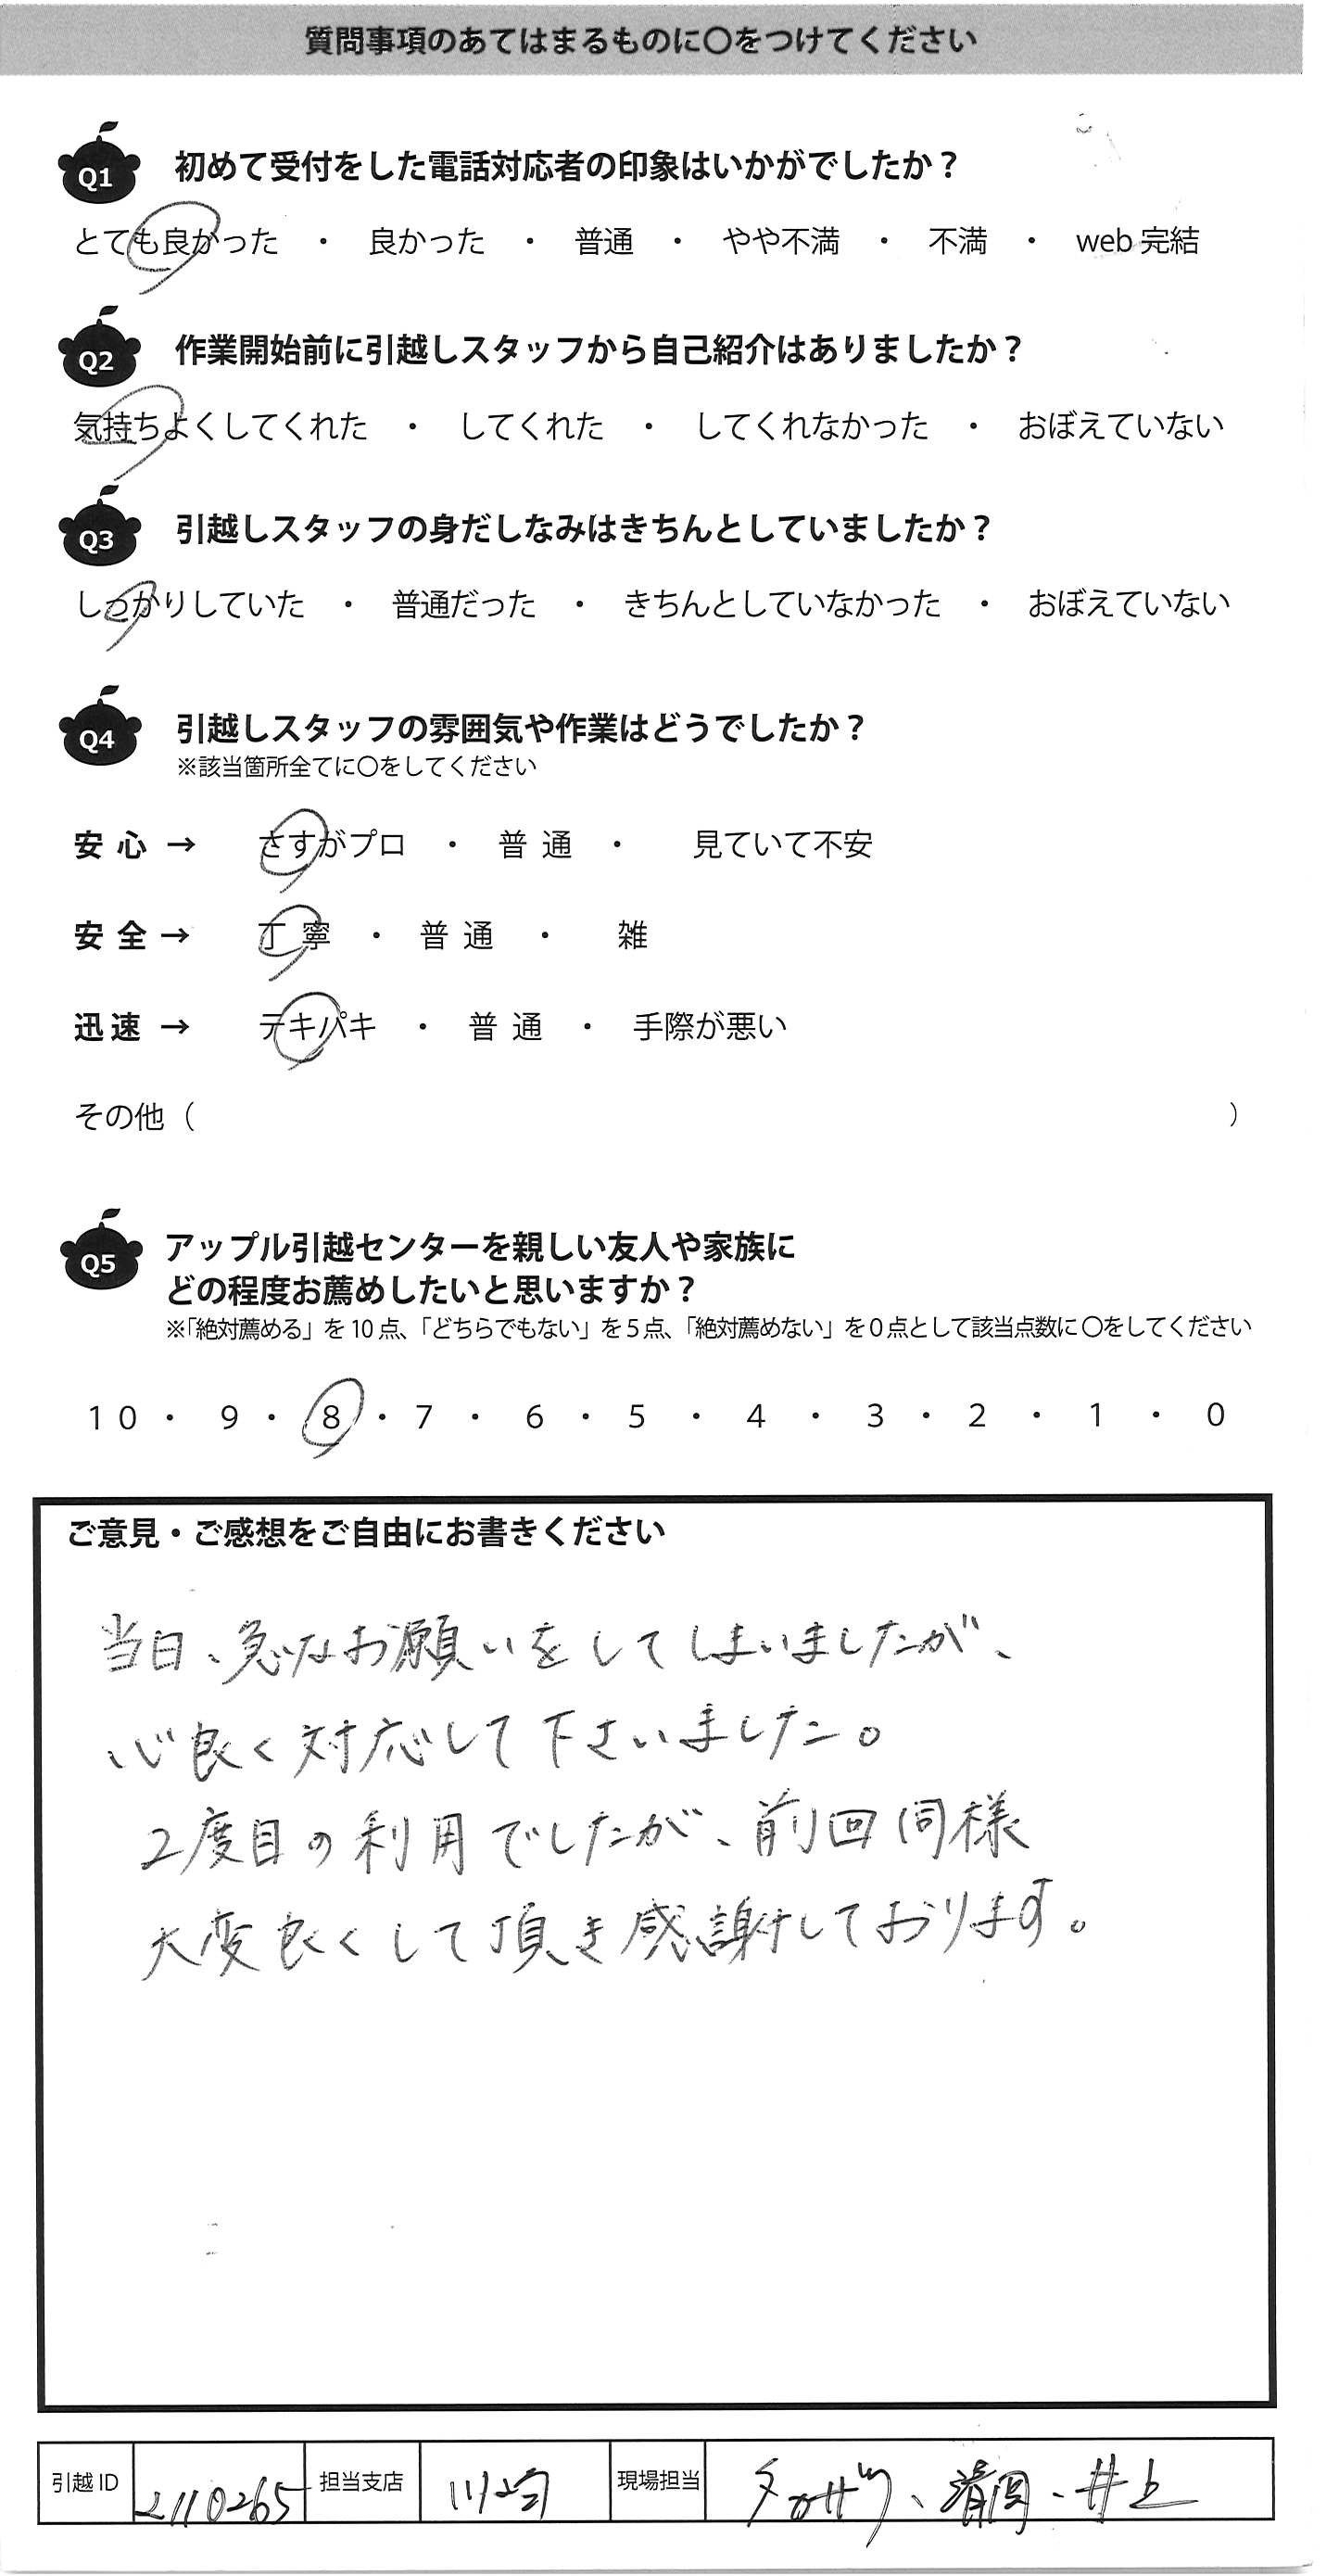 質問事項のあてはまるものに〇をつけてください
Q1 初めて受付をした電話対応者の印象はいかがでしたか？
とても良かった ・ 良かった ・ 普通 ・ やや不満 ・ 不満 ・ web 完結
Q2 作業開始前に引越しスタッフから自己紹介はありましたか？
気持ちよくしてくれた ・ してくれた ・ してくれなかった ・ おぼえていない
Q3 引越しスタッフの身だしなみはきちんとしていましたか？
しっかりしていた ・ 普通だった ・ きちんとしていなかった ・ おぼえていない
Q4 引越しスタッフの雰囲気や作業はどうでしたか？
※該当箇所全てに〇をしてください
安心 → さすがプロ ・ 普通 ・ 見ていて不安
安全 → 丁寧 ・ 普通 ・ 雑
迅速 → テキパキ ・ 普通 ・ 手際が悪い
その他（ ）
Q5 アップル引越センターを親しい友人や家族に
どの程度お薦めしたいと思いますか？
※「絶対薦める」を 10 点、「どちらでもない」を 5 点、「絶対薦めない」を 0 点として該当点数に 〇をしてください
10 ・ 9 ・ 8 ・ 7 ・ 6 ・ 5 ・ 4 ・ 3 ・ 2 ・ 1 ・ 0
ご意見・ご感想をご自由にお書きください
当日、急なお願いをしてしまいましたが、
心良く対応して下さいました。
2度目の利用でしたが、前回同様
大変良くして頂き感謝しております。
引越 ID 2110265 担当支店 川崎 現場担当 、清岡、井上